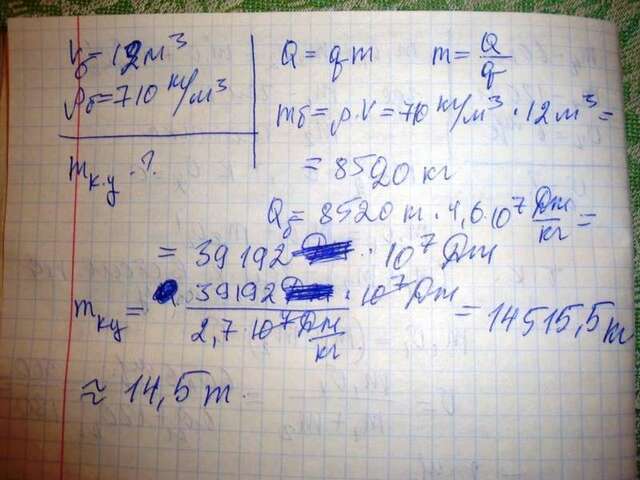 Vб = 12м³
ρб = 710 кг/м³
mк.у - ?
Q = qm m = Q/q
mб = ρ·V = 710 кг/м³ · 12м³ =
= 8520 кг
Qб = 8520 т · 4,6·10⁷ Дж/кг =
= 39192 · 10⁷ Дж
mку = 39192 · 10⁷ Дж / 2,7·10⁷ Дж/кг = 14515,5 т
≈ 14,5 т.